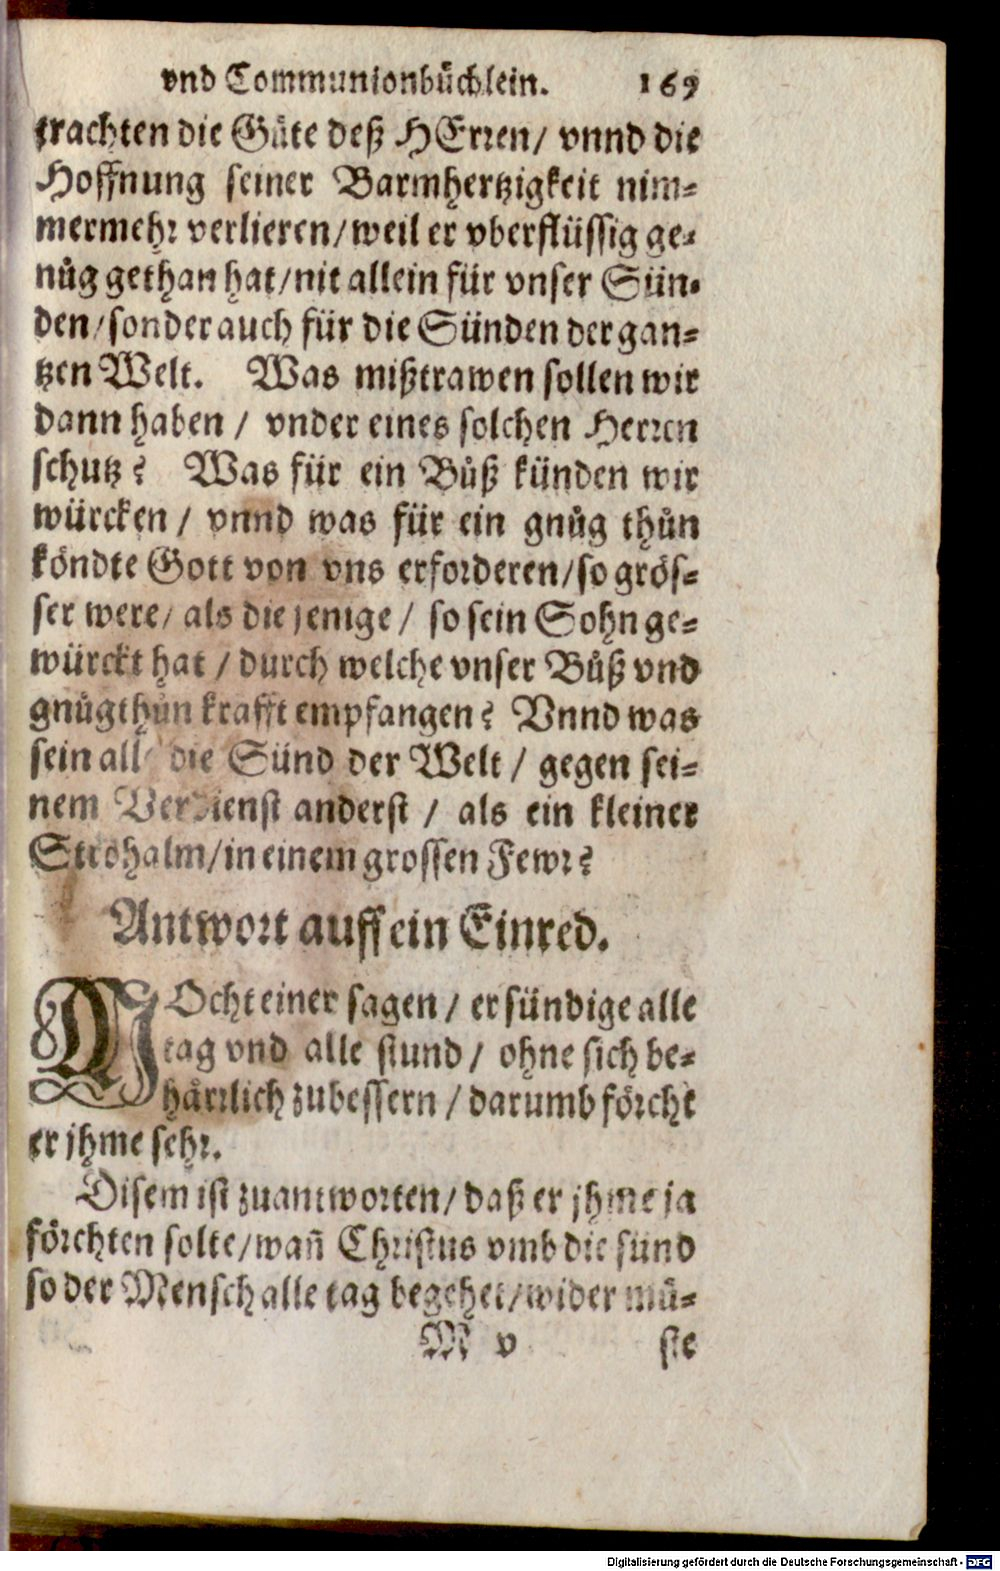 vnd Communionbüchlein. 169
trachten die Güte deß HErren/ vnnd die
Hoffnung seiner Barmhertzigkeit nim-
mermehr verlieren/weil er vberflüssig ge-
nůg gethan hat/nit allein für vnser Sün-
den/sonder auch für die Sünden der gan-
tzen Welt. Was mißtrawen sollen wir
dann haben / vnder eines solchen Herren
schutz? Was für ein Bůß künden wir
würcken / vnnd was für ein gnůg thůn
köndte Gott von vns erforderen/so grös-
ser were/ als die jenige / so sein Sohn ge-
würckt hat / durch welche vnser Bůß vnd
gnůgthůn krafft empfangen? Vnnd was
sein all die Sünd der Welt / gegen sei-
nem Verdienst anderst / als ein kleiner
Strohalm/in einem grossen Fewr?
Antwort auff ein Einred.
MOcht einer sagen / er sündige alle
tag vnd alle stund / ohne sich be-
härrlich zubessern / darumb förcht
er jhme sehr.
Disem ist zuantworten/ daß er jhme ja
förchten solte/wañ Christus vmb die sünd
so der Mensch alle tag begehet/wider mü-
M v ste
Digitalisierung gefördert durch die Deutsche Forschungsgemeinschaft - DFG